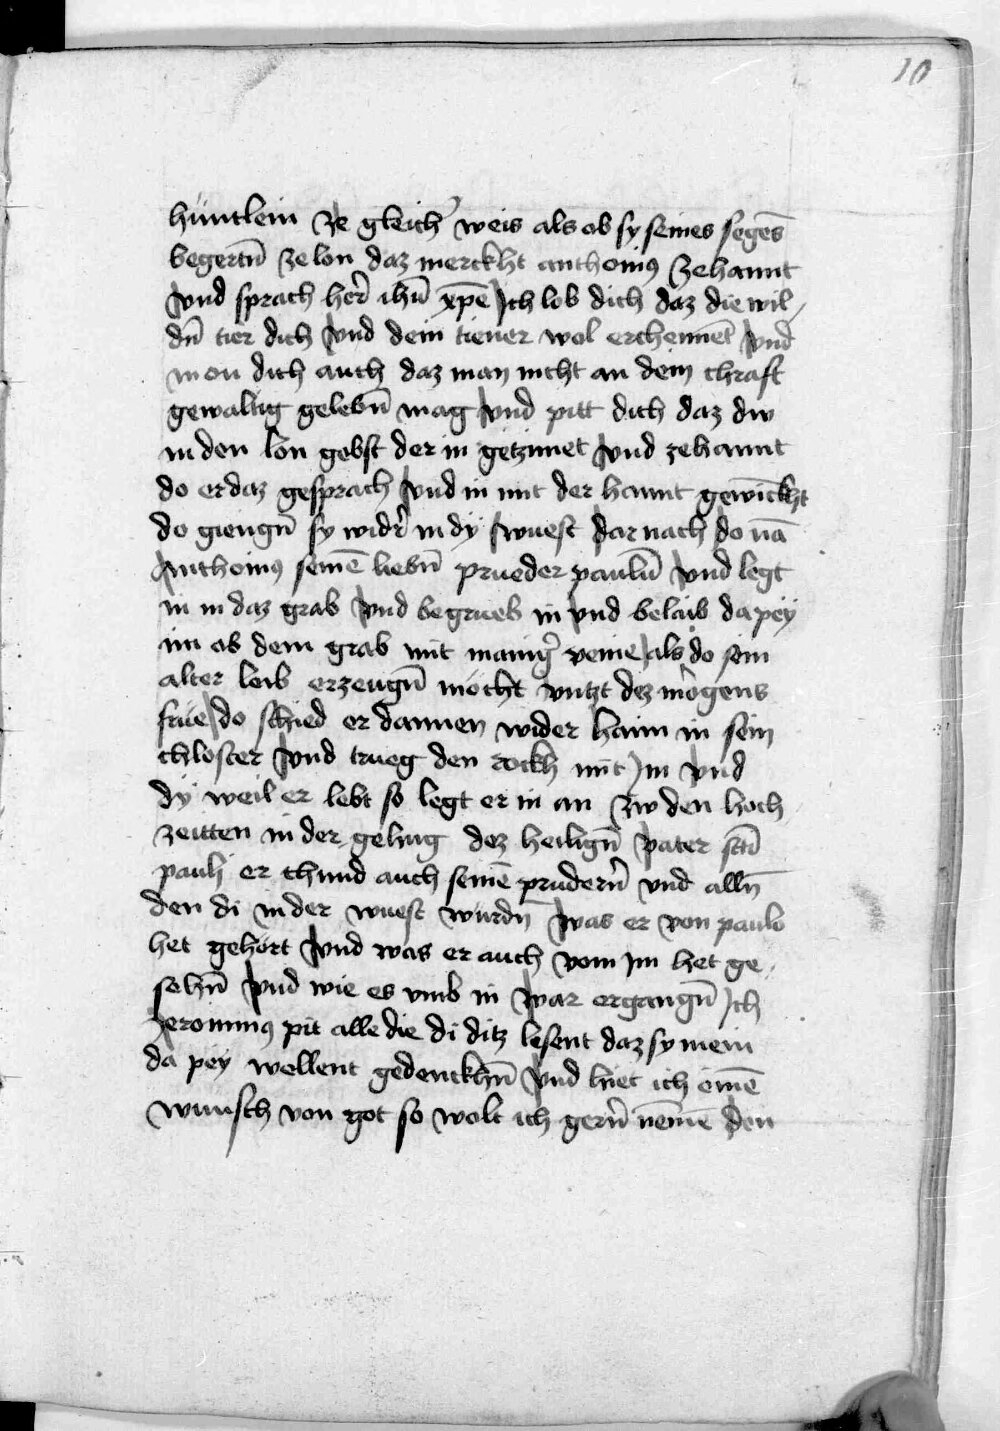 10
hüntlein ze gleich' weis als ob sy seines segēs
begertn̄ ze lon daz merckht anthoniꝰ zehannt
Vnd sprach her̄ ih̄u xp̄e Ich lob dich daz die wil
dn̄ tier dich Vnd dein tiener wol erchennēt Vnd
mon dich auch daz man nicht an dein chraft
gewaltig gelebn̄ mag Vnd pitt dich daz dw
in den lon gebst der in getzimet Vnd zehannt
do er daz gesprach Vnd in mit der hannt gewīckht
do giengn̄ sy wid'r in dy wuest dar nach do nā
Anthoniꝰ seinē liebn̄ prueder paulū Vnd legt
in in daz grab Vnd begrueb in Vnd belaib da pey
im ob dem grab mit manig' venie als do sein
alter leib erzeugn̄ mocht vntzt dez morgens
frue do schied er dannen wider haim in sein
chloster Vnd trueg den rockh mit Im Vnd
dy weil er lebt so legt er in an zw den hoch
zeitten in der gehug dez heilign̄ Vater sc̄ti
pauli er chund auch seinē prudern̄ vnd alln̄
den di in der wuest wurdn̄ Was er von paulo
het gehört Vnd was er auch vom Im het ge
sehn̄ Vnd wie es vmb in War ergangn̄ Ich
Jeronimꝰ pit alle die di ditz lesent daz sy mein
da pey wellent gedenckhn̄ Vnd hiet ich einē
wunsch von got so wolt ich gern̄ nemē den